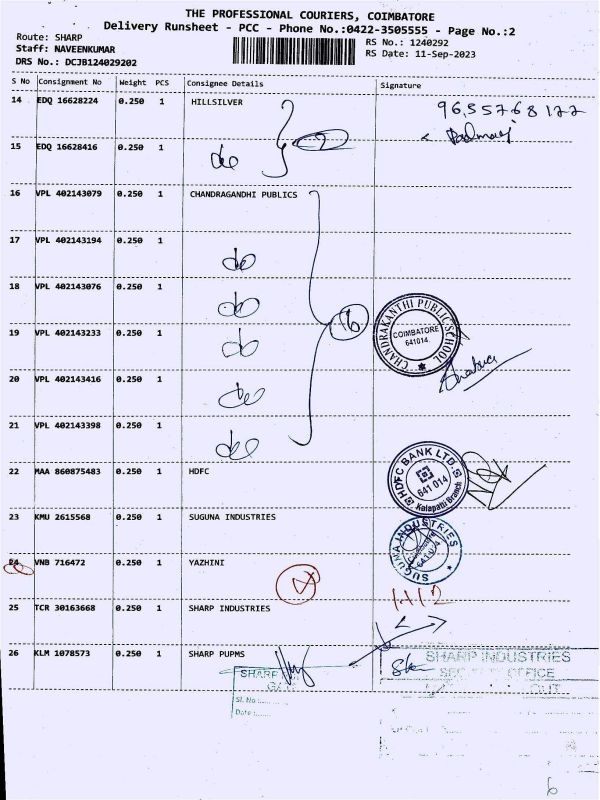 THE PROFESSIONAL COURIERS, COIMBATORE
Delivery Runsheet - PCC - Phone No.:0422-3505555 - Page No.:2
Route: SHARP
Staff: NAVEENKUMAR
DRS No.: DCJB124029202
RS No.: 1240292
RS Date: 11-Sep-2023
S No Consignment No Weight PCS Consignee Details Signature
14 EDQ 16628224 0.250 1 HILLSILVER
15 EDQ 16628416 0.250 1 do
16 VPL 402143079 0.250 1 CHANDRAGANDHI PUBLICS
17 VPL 402143194 0.250 1 do
18 VPL 402143076 0.250 1 do
19 VPL 402143233 0.250 1 do
CHANDRAKANTHI PUBLIC SCHOOL
COIMBATORE
641014.
20 VPL 402143416 0.250 1 do
21 VPL 402143398 0.250 1 do
22 MAA 860875483 0.250 1 HDFC
HDFC BANK LTD.
641 014
Kalapatti Branch
23 KMU 2615568 0.250 1 SUGUNA INDUSTRIES
SUGUNA INDUSTRIES
24 VNB 716472 0.250 1 YAZHINI
25 TCR 30163668 0.250 1 SHARP INDUSTRIES
26 KLM 1078573 0.250 1 SHARP PUPMS
SHARP INDUSTRIES
OFFICE
OUT
SHARP
Sl. No :
Date :